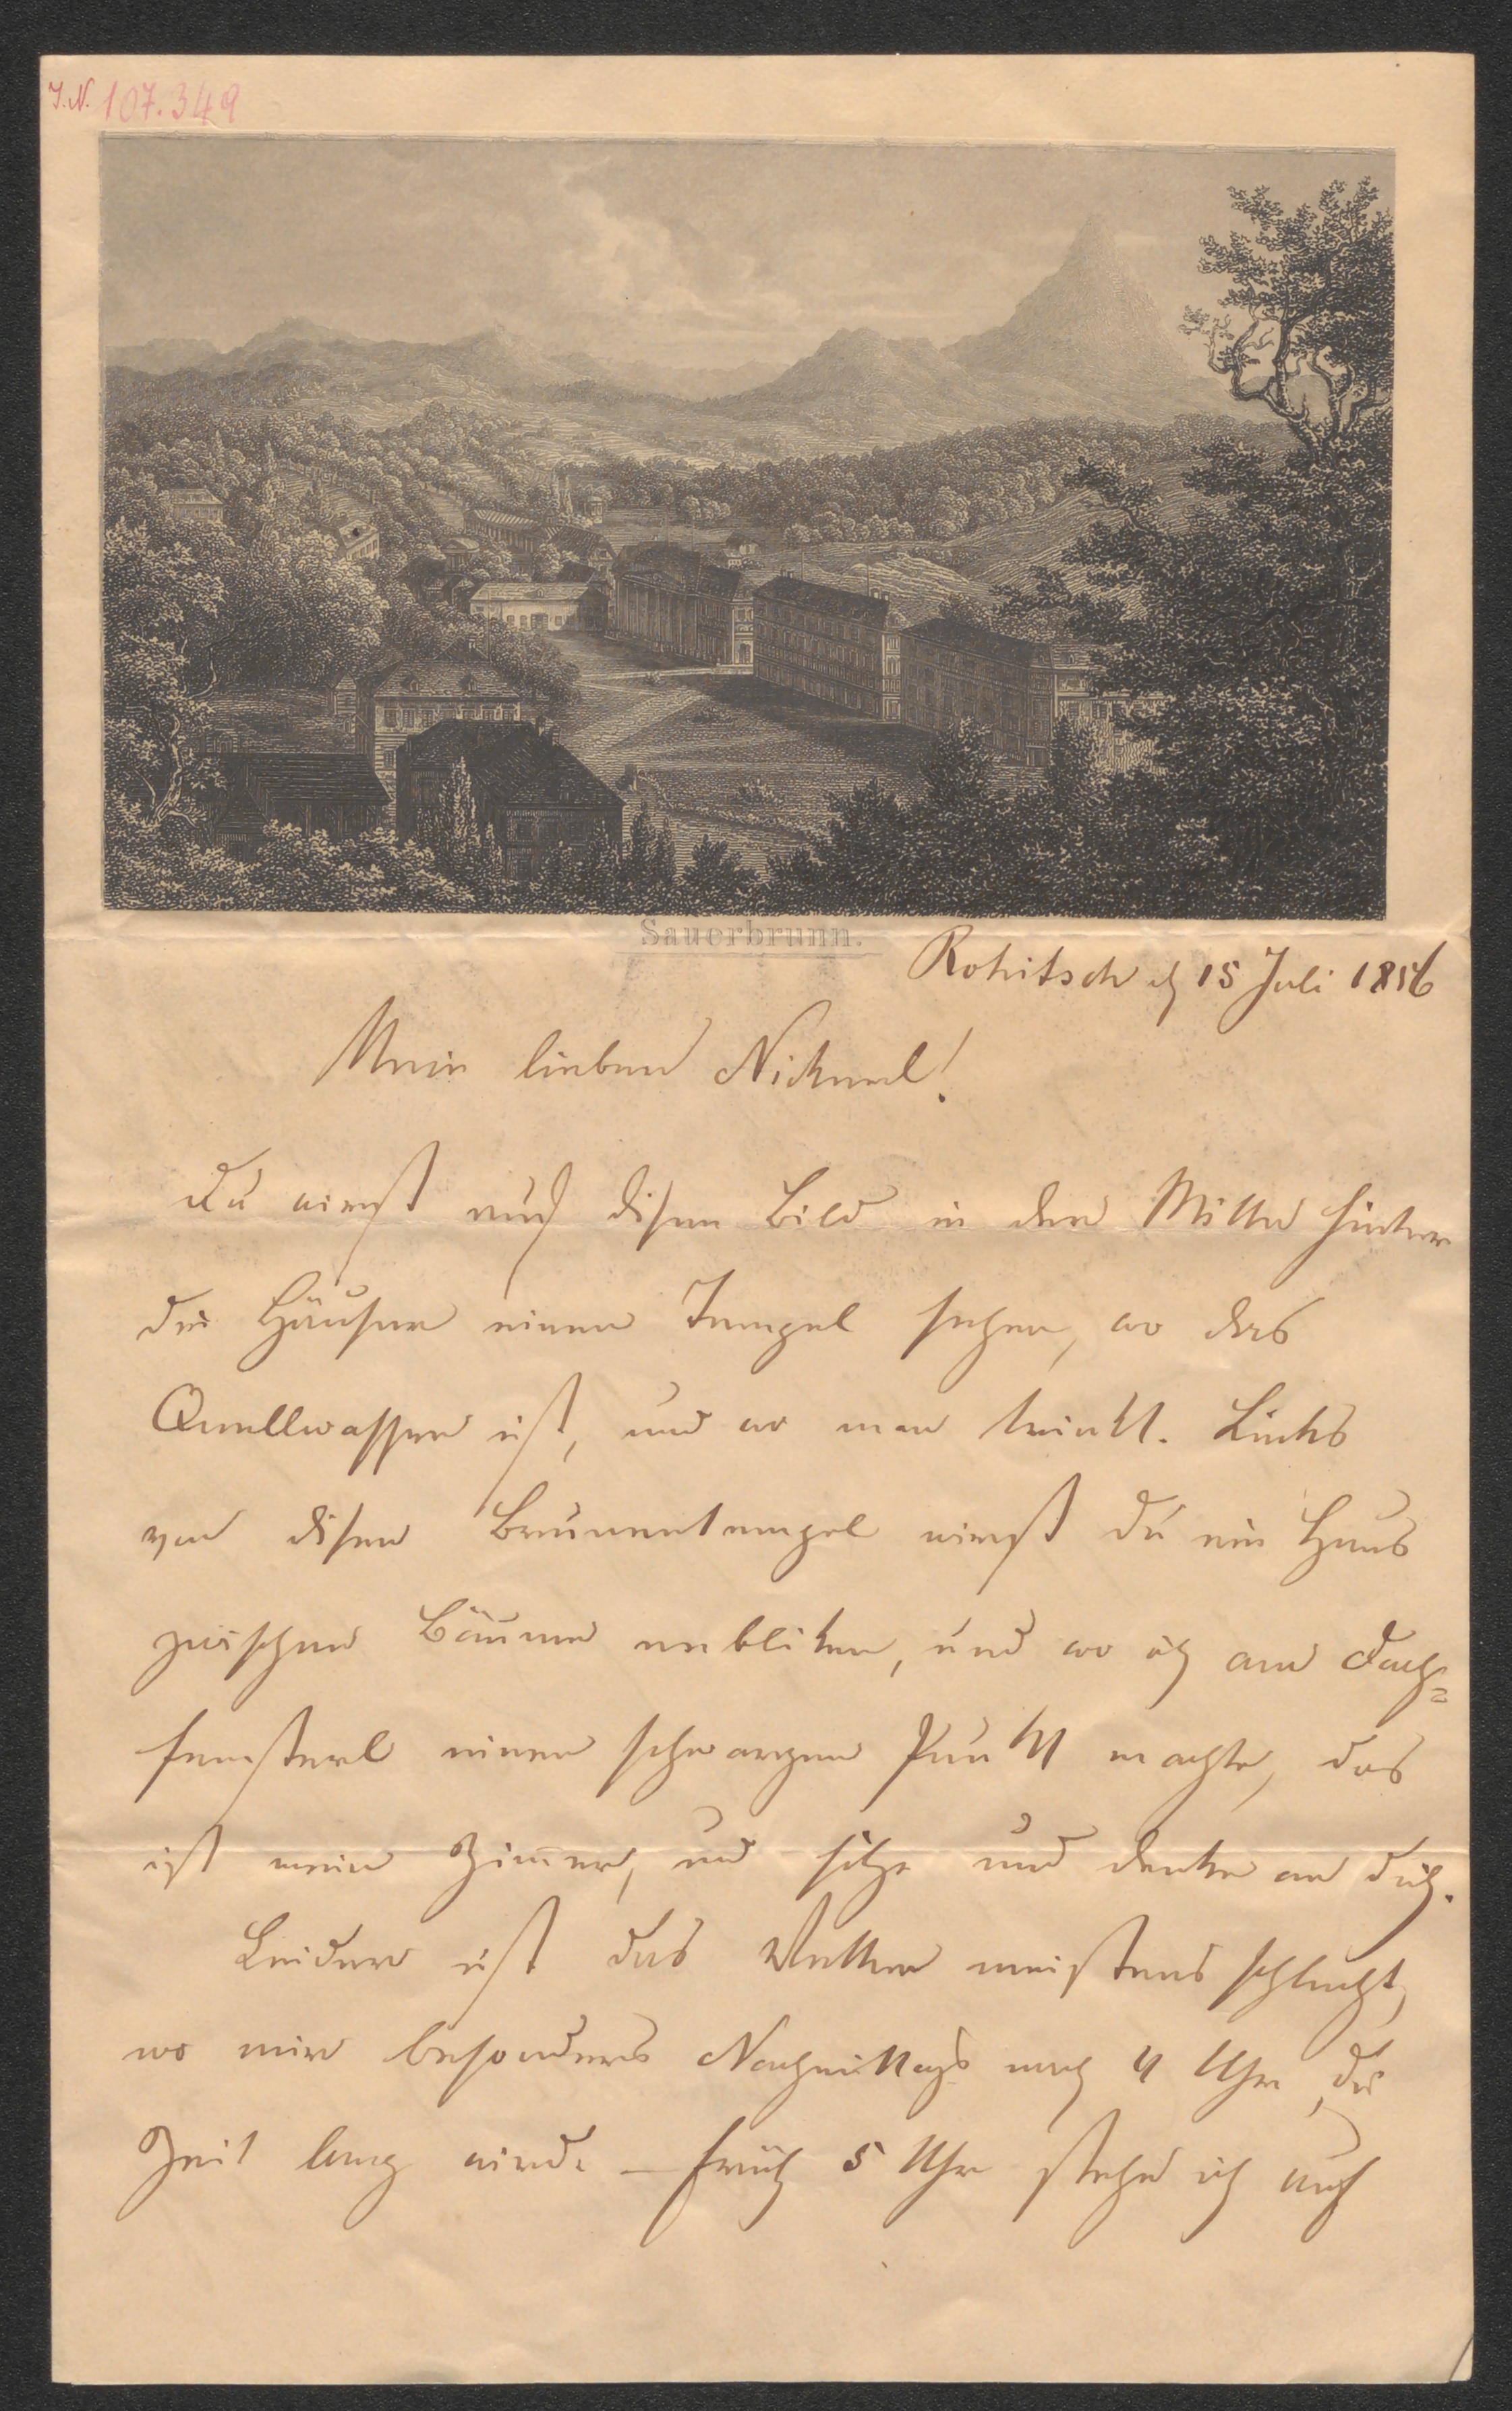 J.N. 107.349
Sauerbrunn.
Rohitsch d 15 Juli 1856
Mein lieber Nickerl!
Du wirst auf disem Bild in der Mitte hinter
die Häuser einen Tempel sehen, wo das
Quellwasser ist, und wo man trinkt. Links
von disen Brunnentempel wirst du ein Haus
zwischen Bäume erbliken, und wo ich am Dach=
fensterl einen schwarzen Punkt machte, das
ist mein Zimmer, und sitze und denke an dich.
Leider ist das Wetter meistens schlecht,
wo mir besonders Nachmittags nach 4 Uhr die
Zeit lang wird. – Früh 5 Uhr stehe ich auf